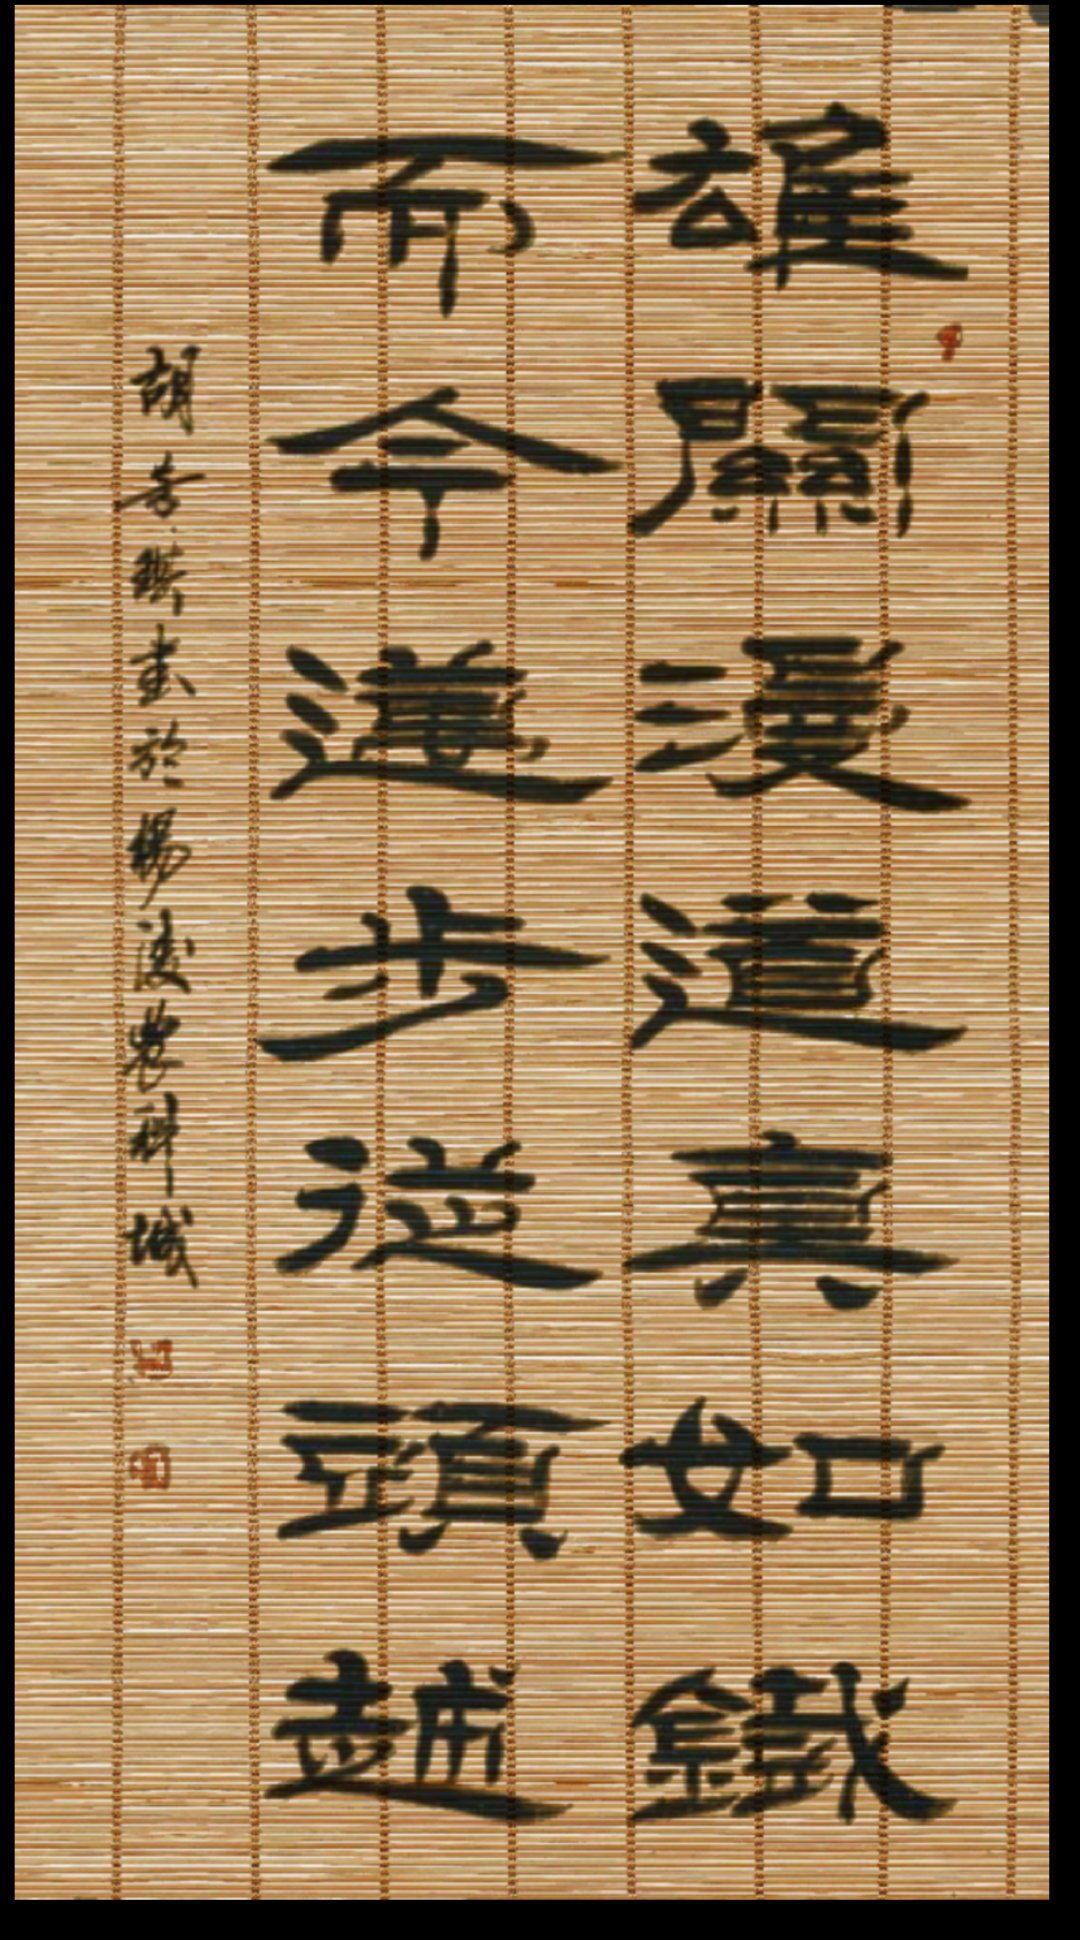 雄關漫道真如鐵
而今邁步從頭越
胡書於楊淩農科城